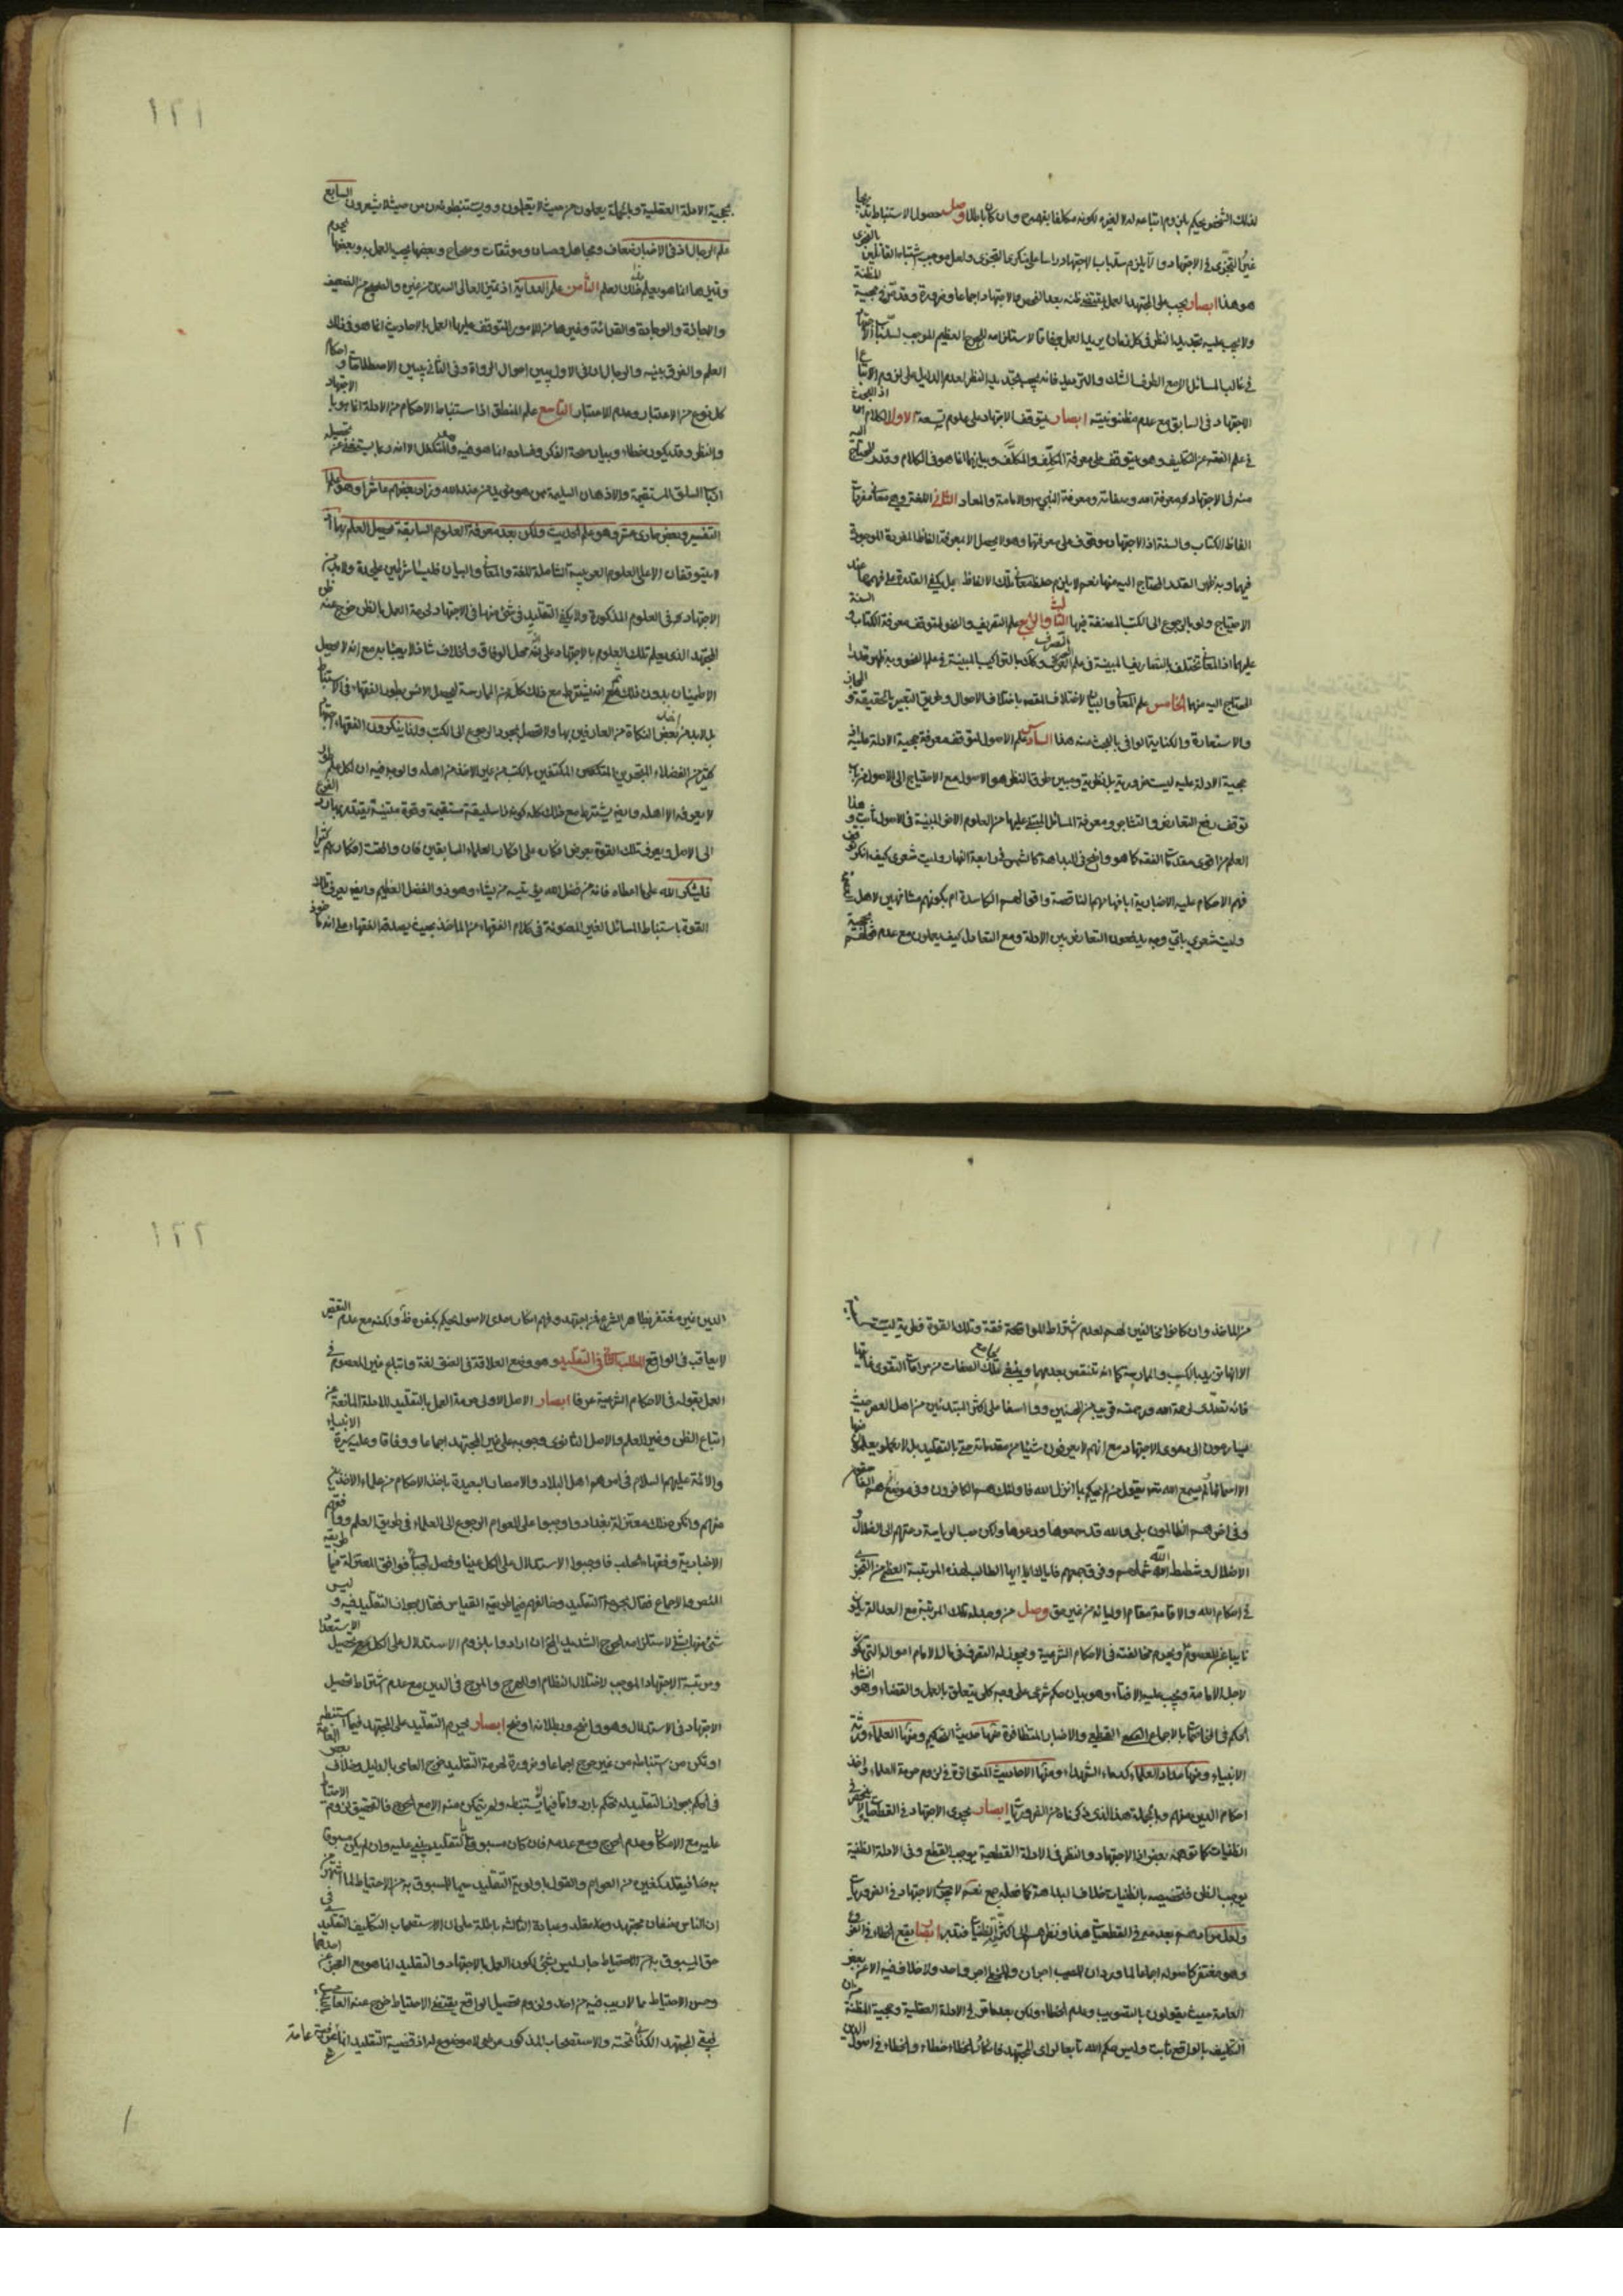 لذلك الشخص بحكم بلزوم اتباعه له لا لغيره لكونه مكلفا بفهمه وان كان باطلا وصل حصول الاستنباط بها
غير التجزى فى الاجتهاد والا يلزم سد باب الاجتهاد راسا على منكرى التجزى ولعل موجب اشتباه القائلين
هو هذا ايصار يجب على المجتهد العمل بمقتضى ظنه بعد الفحص والاجتهاد اجماعا وضرورة وقد مر فى حجية المظنة
ولا يجب عليه تجديد النظر فى كل زمان يريد العمل وفاقا لاستلزامه الحرج العظيم الموجب
فى غالب المسائل الا مع الشك والترديد فانه يجب تجديد النظر لعدم الدليل على لزوم الاتباع
الاجتهاد فى السابق مع عدم مظنونيته ايصار يتوقف الاجتهاد على علوم تسعة الاول الكلام اذ البحث
فى علم الفقه عن التكليف وهو يتوقف على معرفة المكلِّف والمكلَّف وبيانهما انما هو فى الكلام وقدر المحتاج اليه
منه فى الاجتهاد هو معرفة الله وصفاته ومعرفة النبى والامامة والمعاد الثانى اللغة وهى معانى مفردات
الفاظ الكتاب والسنة اذ الاجتهاد موقوف على معرفتها وهو لا يحصل الا بمعرفة الفاظ المفردة الموجودة
فيها وبه ظهر القدر المحتاج اليه منها نعم لا يلزم حفظ معانى تلك الالفاظ بل يكفى القدرة على فهمها عند
الاحتياج ولو بالرجوع الى الكتب المصنفة فيها الثالث والرابع علم التصريف والنحو لتوقف معرفة الكتاب والسنة
عليهما اذ المعانى تختلف بالتصاريف المبينة فى علم الصرف وكذا بالتراكيب المبينة فى علم النحو وبه ظهر قدر
المحتاج اليه منهما الخامس علم المعانى والبيان لاختلاف المقصود باختلاف الاحوال وطريق التعبير بالحقيقة والمجاز
والاستعارة والكناية الوافى بالبحث عنه هذا السادس علم الاصول لتوقف معرفة حجية الادلة عليه اذ
حجية الادلة عليه ليست ضرورية بل نظرية ومبين طرق النظر هو الاصول مع الاحتياج الى الاصول
توقف رفع التعارض والتشابه ومعرفة المسائل المبتنى عليها من العلوم الاخر المبينة فى الاصول هذا
العلم من اقوى مقدمات الفقه كما هو واضح فى البداهة كالشمس فى رابعة النهار وليت شعرى كيف انكر
فهم الاحكام عليه الاخبارية ابافهامهم الناقصة واقوالهم الكاسدة ام بكونهم مشافهين لاهل
وليت شعرى باى وجه يدفعون التعارض بين الادلة ومع التعادل كيف يعملون مع عدم
بحجية الادلة العقلية وبالجملة يعملون من حيث لا يعقلون ويستنبطون من حيث لا يشعرون السابع
علم الرجال اذ فى الاخبار ضعاف ومجاهيل وحسان وموثقات وصحاح وبعضها يجب العمل به وبعضها يحرم
وتميزها انما هو بعلم ذلك العلم الثامن علم الدراية اذ تميز العالى السند من غيره والصحيح من الضعيف
والاجازة والوجادة والقرائة وغيرها من الامور المتوقف عليها العمل بالاحاديث انما هو فى ذلك
العلم والفرق بينه والرجال ان فى الاول يبين احوال الرواة وفى الثانى يبين الاصطلاحات واحكام
كل نوع من الاعتبار وعدم الاعتبار التاسع علم المنطق اذا استنباط الاحكام من الادلة انما هو بالاجتهاد
والنظر وقد يكون خطاء وبيان صحة الفكر وفساده انما هو فيه والمتكفل الا انه ربما يستغنى عن تحصيله
ارباب السليقة المستقيمة والاذهان السليمة ممن هو مؤيد من عند الله وزاد بعضهم عاشرا وهو علم
التفسير وبعض حادى عشر وهو علم الحديث ولكن بعد معرفة العلوم السابقة يحصل العلم بهما
لا يتوقفان الا على العلوم العربية الشاملة للغة والمعانى والبيان فليسا شرطين عليحدة ولا بد من
الاجتهاد فى العلوم المذكورة ولا يكفى التقليد فى شئ منها فى الاجتهاد لحرمة العمل بالظن خرج عنه ظن
المجتهد الذى يعلم تلك العلوم بالاجتهاد على انه محل الوفاق والخلاف شاذ لا يعبأ به مع انه لا يحصل
الاطمينان بدون ذلك ثم انه يشترط مع ذلك كله من الممارسة ليحصل الانس بطور الفقهاء فى الاستنباط
بل لا بد من بعض النكاة من العارفين بها ولا تحصل بمجرد الرجوع الى الكتب ولذا ينكرون الفقهاء اجتهاد
كثير من الفضلاء المكتفين بالكتب من غير الاخذ من اهله والوجه فيه ان لكل علم
لا يعرفه الا اهله وايضا يشترط مع ذلك كله كونه ذا سليقة مستقيمة وقوة متينة يقتدر بها رد الفرع
الى الاصل ويعرف تلك القوة بعرض افكاره على افكار العلماء السابقين فان وافقت افكارهم كثيرا
فليشكر الله على ما اعطاه فانه من فضل الله يؤتيه من يشاء وهو ذو الفضل العظيم وايضا يعرف تلك
القوة باستنباط المسائل الغير المعنونة فى كلام الفقهاء من المآخذ بحيث يصدقه الفقهاء على انه ماخوذ
من الماخذ وان كانوا مخالفين لهم لعدم اشتراط الموافقة فقه وتلك القوة فطرية ليست
الا انها تزيد بالكسب والممارسة كما انه تنتقص بعدمها وينبغى مجامع تلك الصفات من مراعات التقوى
فانه تعلق لرحمة الله ورحمته قريب من المحسنين ووا اسفا على اكثر المبتدئين من اهل العصر حيث
يبارحون الى دعوى الاجتهاد مع انهم لا يعرفون شيئا من مقدماته حتى بالتقليد بل لا يعلمون منها
الا اسمائها الم يسمع الله يقول من لم يحكم بما انزل الله فاولئك هم الكافرون وفى موضع هم الفاسقون
وفى اخر هم الظالمون بلى والله قد سمعوها ووعوها ولكن حب الرياسة دعتهم الى الضلال و
الاضلال وشطط الله شملهم وفرق جمعهم فاياك اياك ايها الطالب لهذه المرتبة العظمى من التجزى
فى احكام الله والاقامة مقام اوليائه من غير حق وصل من وجد له تلك المرتبة مع العدالة يكون
نايبا عن المعصوم ويحرم مخالفته فى الاحكام الشرعية ويجوز له التصرف فى مال الامام اموال التى تكون
لاجل الامامة ويجب عليه الافتاء وهو بيان حكم شرعى على وجه كلى يتعلق بالعمل والقضاء وهو انشاء
الحكم فى الخاصة بالاجماع القطعى والاخبار المتظافرة منها حديث التحكيم ومنها العلماء ورثة
الانبياء ومنها مداد العلماء كدماء الشهداء ومنها الاحاديث المتواترة فى لزوم حرمة العلماء واخذ
احكام الدين منهم وبالجملة هذا الذى ذكرناه من الضروريات ايصار يجرى الاجتهاد فى القطعيات
الظنيات كما توهمه بعض اذ الاجتهاد والنظر فى الادلة القطعية يوجب القطع وفى الادلة الظنية
يوجب الظن فتخصيصه بالظنيات خلاف البداهة كما فعله جمع نعم لا يجرى الاجتهاد فى الضروريات
ولعل مرادهم بعد خيره فى القطعيات هذا ونظرهم الى اكثرية الظنيات فتدبر ايصار يقع الخطاء فى الفروع
وهو مغتفر كاصوله اجماعا لما ورد ان للمصيب اجران وللمخطى اجر واحد ولا خلاف فيه الا عن بعض
العامة حيث يقولون بالتصويب وعدم الخطاء ولكن بعد ما مر فى الادلة العقلية وحجية المظنة من ان
التكليف بالواقع ثابت وليس حكم الله تابعا لراى المجتهد فانكار الخطاء خطاء والخطاء فى اصول الدين
الدين غير مغتفر بظاهر الشرع فمن اجتهد وفهم انكار احدى الاصول يحكم بكفره ظاهرا ولكنه مع عدم التقصير
لا يعاقب فى الواقع المطلب الثانى فى التقليد وهو وضع العلاقة فى العنق لغة واتباع غير المعصوم فى
العمل بقوله فى الاحكام الشرعية عرفا ايصار الاصل الاولى حرمة العمل بالتقليد للادلة المانعة عن
اتباع الظن وغير العلم والاصل الثانوى وجوبه على غير المجتهد اجماعا ووفاقا وعليه سيرة الانبياء
والائمة عليهم السلام فى امرهم اهل البلاد والامصار البعيدة باخذ الاحكام من علماء الاخذين
منهم وانكر ذلك معتزلة بغداد واوجبوا على العوام الرجوع الى العلماء فى طريق العلم ووافقهم
الاخبارية وفقهاء الحلب فاوجبوا الاستدلال على الكل عينا وفصل الجبائى فوافق المعتزلة فيما طريقه
النص والاجماع فقال بحرمة التقليد وخالفهم فيما طريقه القياس فقال بجواز التقليد فيه وليس
شئ منها بشئ لاستلزامه الحرج الشديد ان ارادوا بلزوم الاستدلال على الكل مع تحصيل الاستعداد
ومرتبة الاجتهاد الموجب لاختلال النظام او الهرج والمرج فى الدين مع عدم اشتراط تحصيل
الاجتهاد فى الاستدلال وهو واضح وبطلانه اوضح ايصار يحرم التقليد على المجتهد فيما استنبطه
او تمكن من استنباطه من غير حرج اجماعا وضرورة لحرمة التقليد خرج العامى بالدليل وخلاف بعض العامة
فى الحكم بجواز التقليد له تحكم بارد واما فيما لم يستنبطه ولم يتمكن منه الا مع الحرج فالتحقيق لزوم الاحتياط
عليه مع الامكان وعدم الحرج ومع عدمه فان كان مسبوقا بالتقليد يبقى عليه وان لم يكن مسبوقا
به صار فيقلد كغيره من العوام والقول باولوية التقليد سيما المسبوق به من الاحتياط لما اشتهر من
ان الناس صنفان مجتهد ومقلد وعبادة الثالث باطلة على ان الاستصحاب التكليف التقليد فى
حق المسبوق به من الاحتياط جار ليس بشئ لكون العمل بالاجتهاد والتقليد انما هو مع العجز عن احدهما
وحسن الاحتياط مما لا ريب فيه من احد ولزوم تحصيل الواقع يقتضى الاحتياط خرج عنه العامى
فبقى المجتهد تحته والاستصحاب المذكور مما لا موضوع له اذ قضية التقليد انما عامة
١٢١
١٢٢